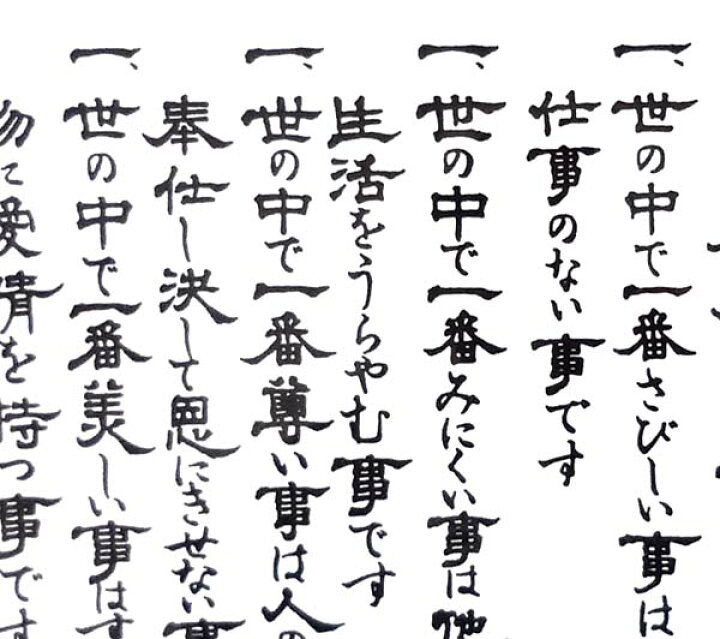 一、世の中で一番さびしい事は
仕事のない事です
一、世の中で一番みにくい事は他
生活をうらやむ事です
一、世の中で一番尊い事は人の
奉仕し決して恩にきせない事
一、世の中で一番美しい事はす
物に愛情を持つ事です